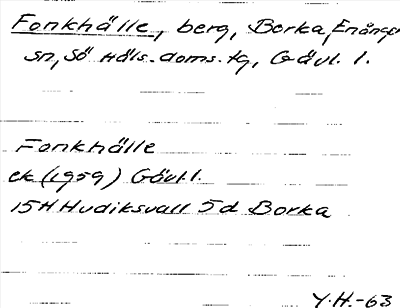 Fonkhälle, berg, Borka, Enånger
sn, Sö Häls. doms. tg, Gävl. l.
Fonkhälle
ek (1959) Gävl.l.
15H Hudiksvall 5d Borka
Y.H.-63